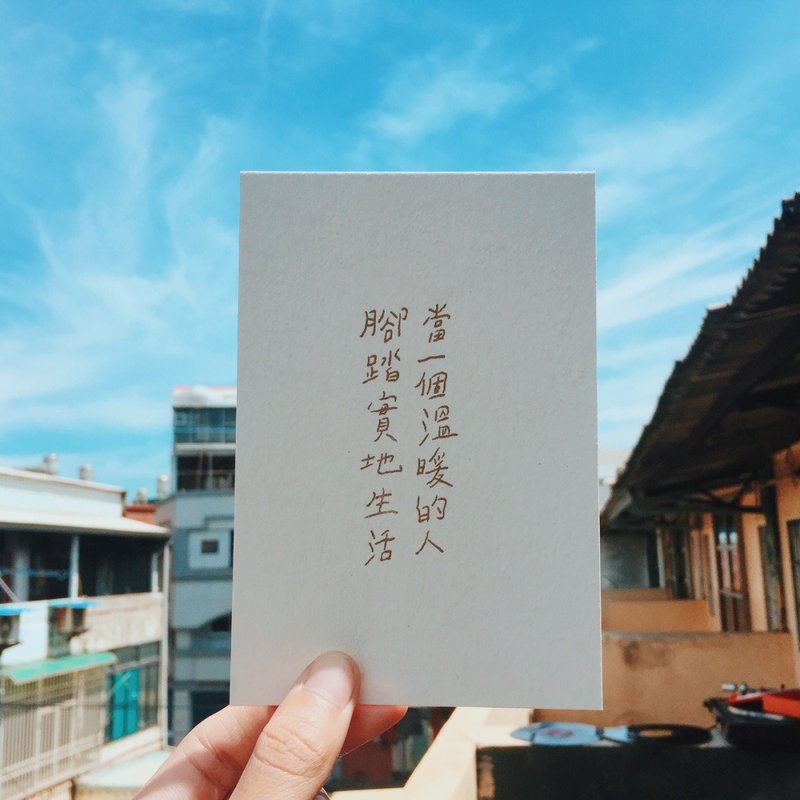 當一個溫暖的人
腳踏實地生活